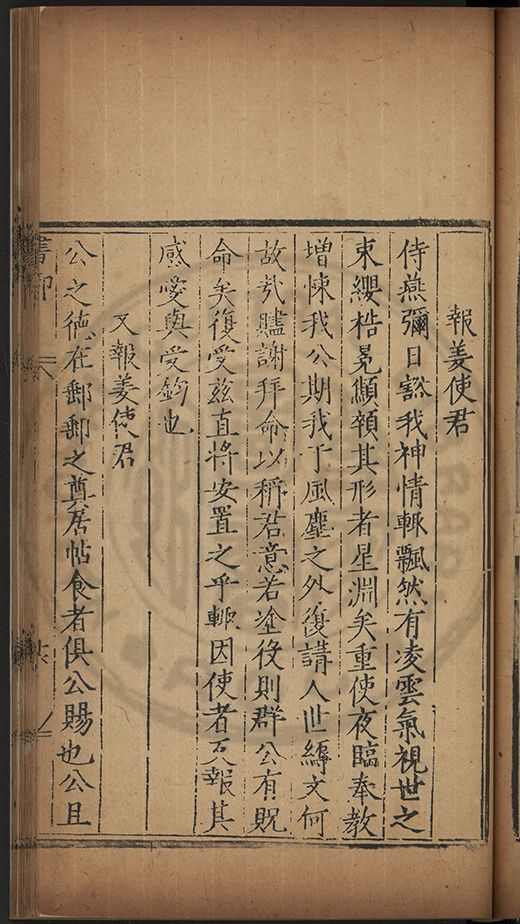 報姜使君
侍燕彌日豁我神情輙飄然有凌雲氣視世之
束纓梏冕顑頷其形者星淵矣重使夜臨奉教
增悚我公期我于風塵之外復講人世縟文何
故哉贐謝拜命以稱君意若塗役則群公有貺
命矣復受玆直將安置之乎輙因使者反報其
感愛與受鈞也
又報姜使君
公之德在郵郵之奠居帖食者俱公賜也公且